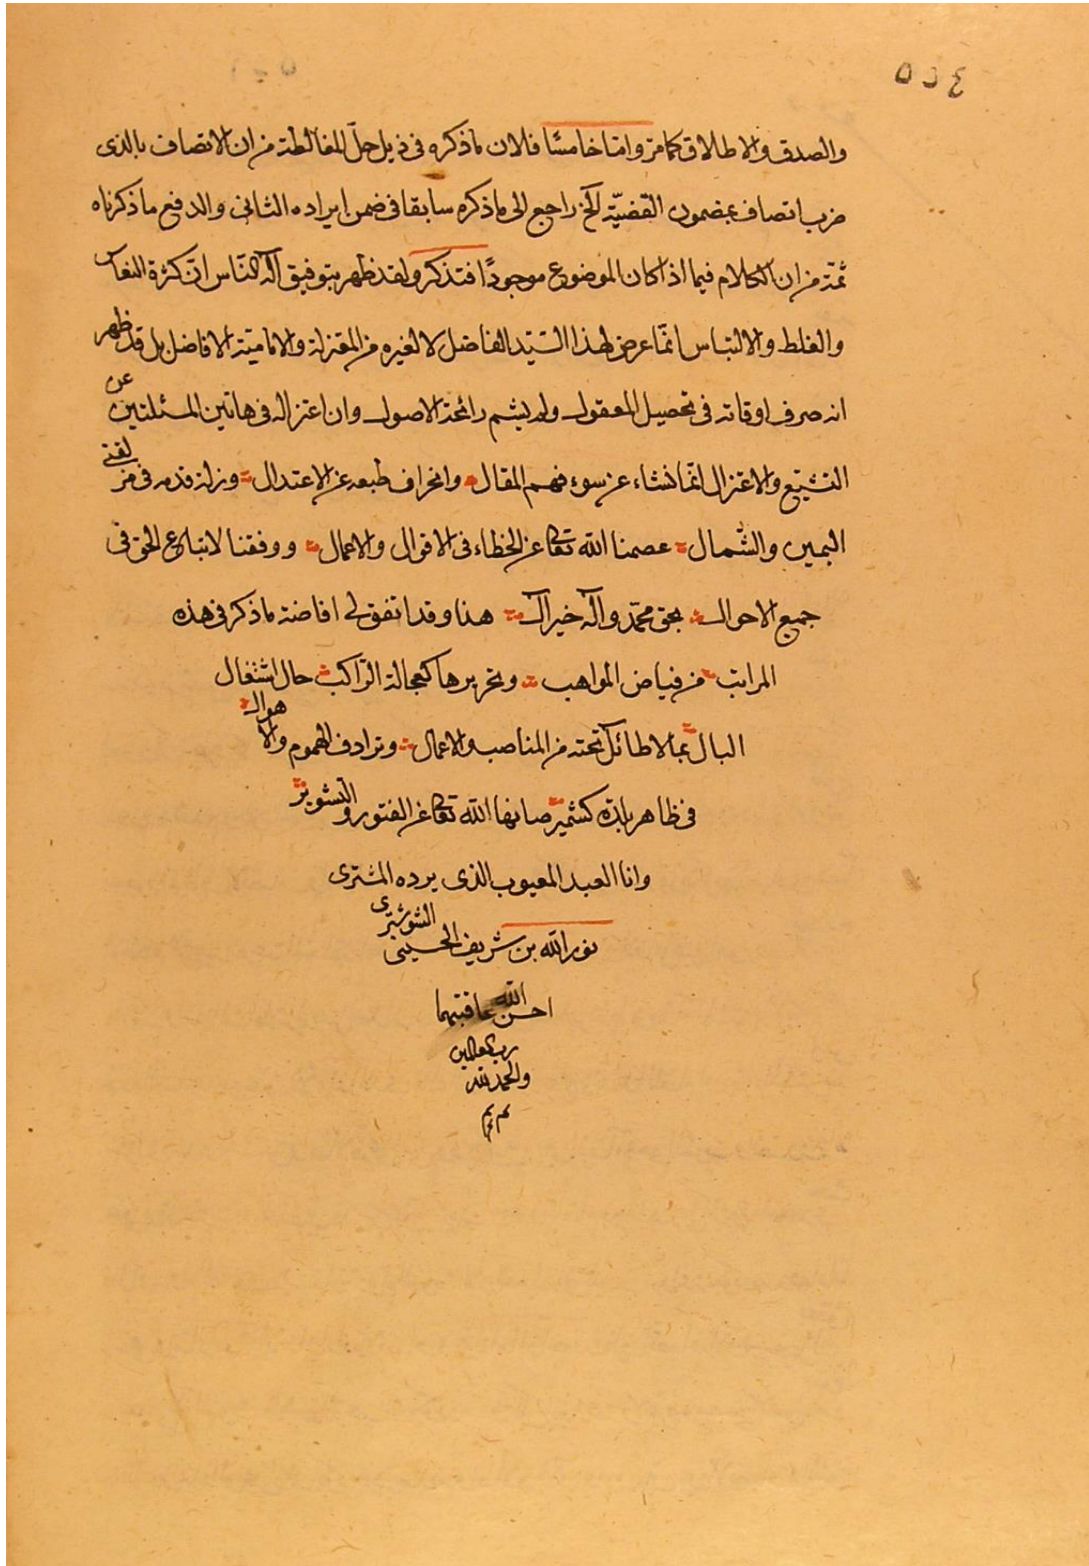 ٥٥٤
والصدق والاطلاق كما مر واما خامسًا فلان ما ذكره في ذيل حلّ المغالطة من ان الاتصاف بالذى
اتصاف بمضمون القضيّة الخ راجع الى ما ذكره سابقا فى ضمن ايراده الثانى والدفع ما ذكرناه
ثمّة من ان الكلام فيما اذا كان الموضوع موجودًا فتذكر ولقد ظهر بتوفيق اله النّاس انّ كثرة النعاس
والغلط والالتباس انّما عرض لهذا السّيّد الفاضل لا لغيره من المعتزلة والاماميّة الافاضل بل قد ظهر
انه صرف اوقاته فى تحصيل المعقول ولم يشم رائحة الاصول وان اعتزاله فى هاتين المسئلتين عن
التشيّع والاعتزال انّما نشاء عن سوء فهم المقال وانحراف طبعه عن الاعتدال وزلة قدمه فى
اليمين والشّمال عصمنا الله تعالى عن الخطاء فى الاقوال والاعمال ووفقنا لاتباع الحق فى
جميع الاحوال بحق محمّد وآله خير آل هذا وقد اتفق لى افاضة ما ذكر فى هذه
المراتب من فياض المواهب وتحريرها كعجالة الرّاكب حال اشتغال
البال بما لا طائل تحته من المناصب والاعمال وترادف الهموم والاهوال
فى ظاهر بلدة كشمير صانها الله تعالى عن الفتور والتشوير
وانا العبد المعيوب الذى يرده المشترى
نور الله بن شريف الحسينى الشوشترى
احسن الله عاقبتهما
والحمد لله رب العالمين